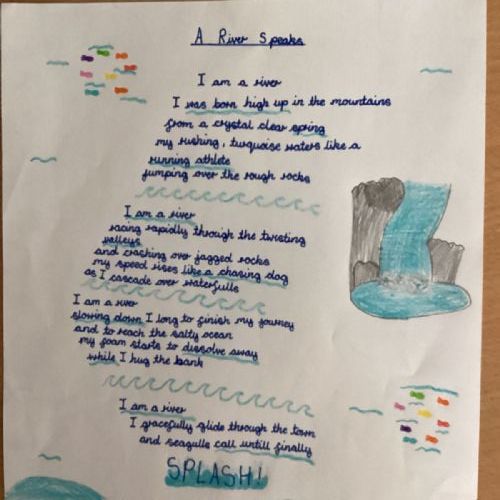 A River Speaks
I am a river
I was born high up in the mountains
from a crystal clear spring
my rushing, turquoise waters like a
running athlete
jumping over the rough rocks
I am a river
racing rapidly through the twisting
valleys
and crashing over jagged rocks
my speed rises like a chasing dog
as I cascade over waterfalls
I am a river
slowing down I long to finish my journey
and to reach the salty ocean
my foam starts to dissolve away
while I hug the bank
I am a river
I gracefully glide through the town
and seagulls call untill finally
SPLASH!